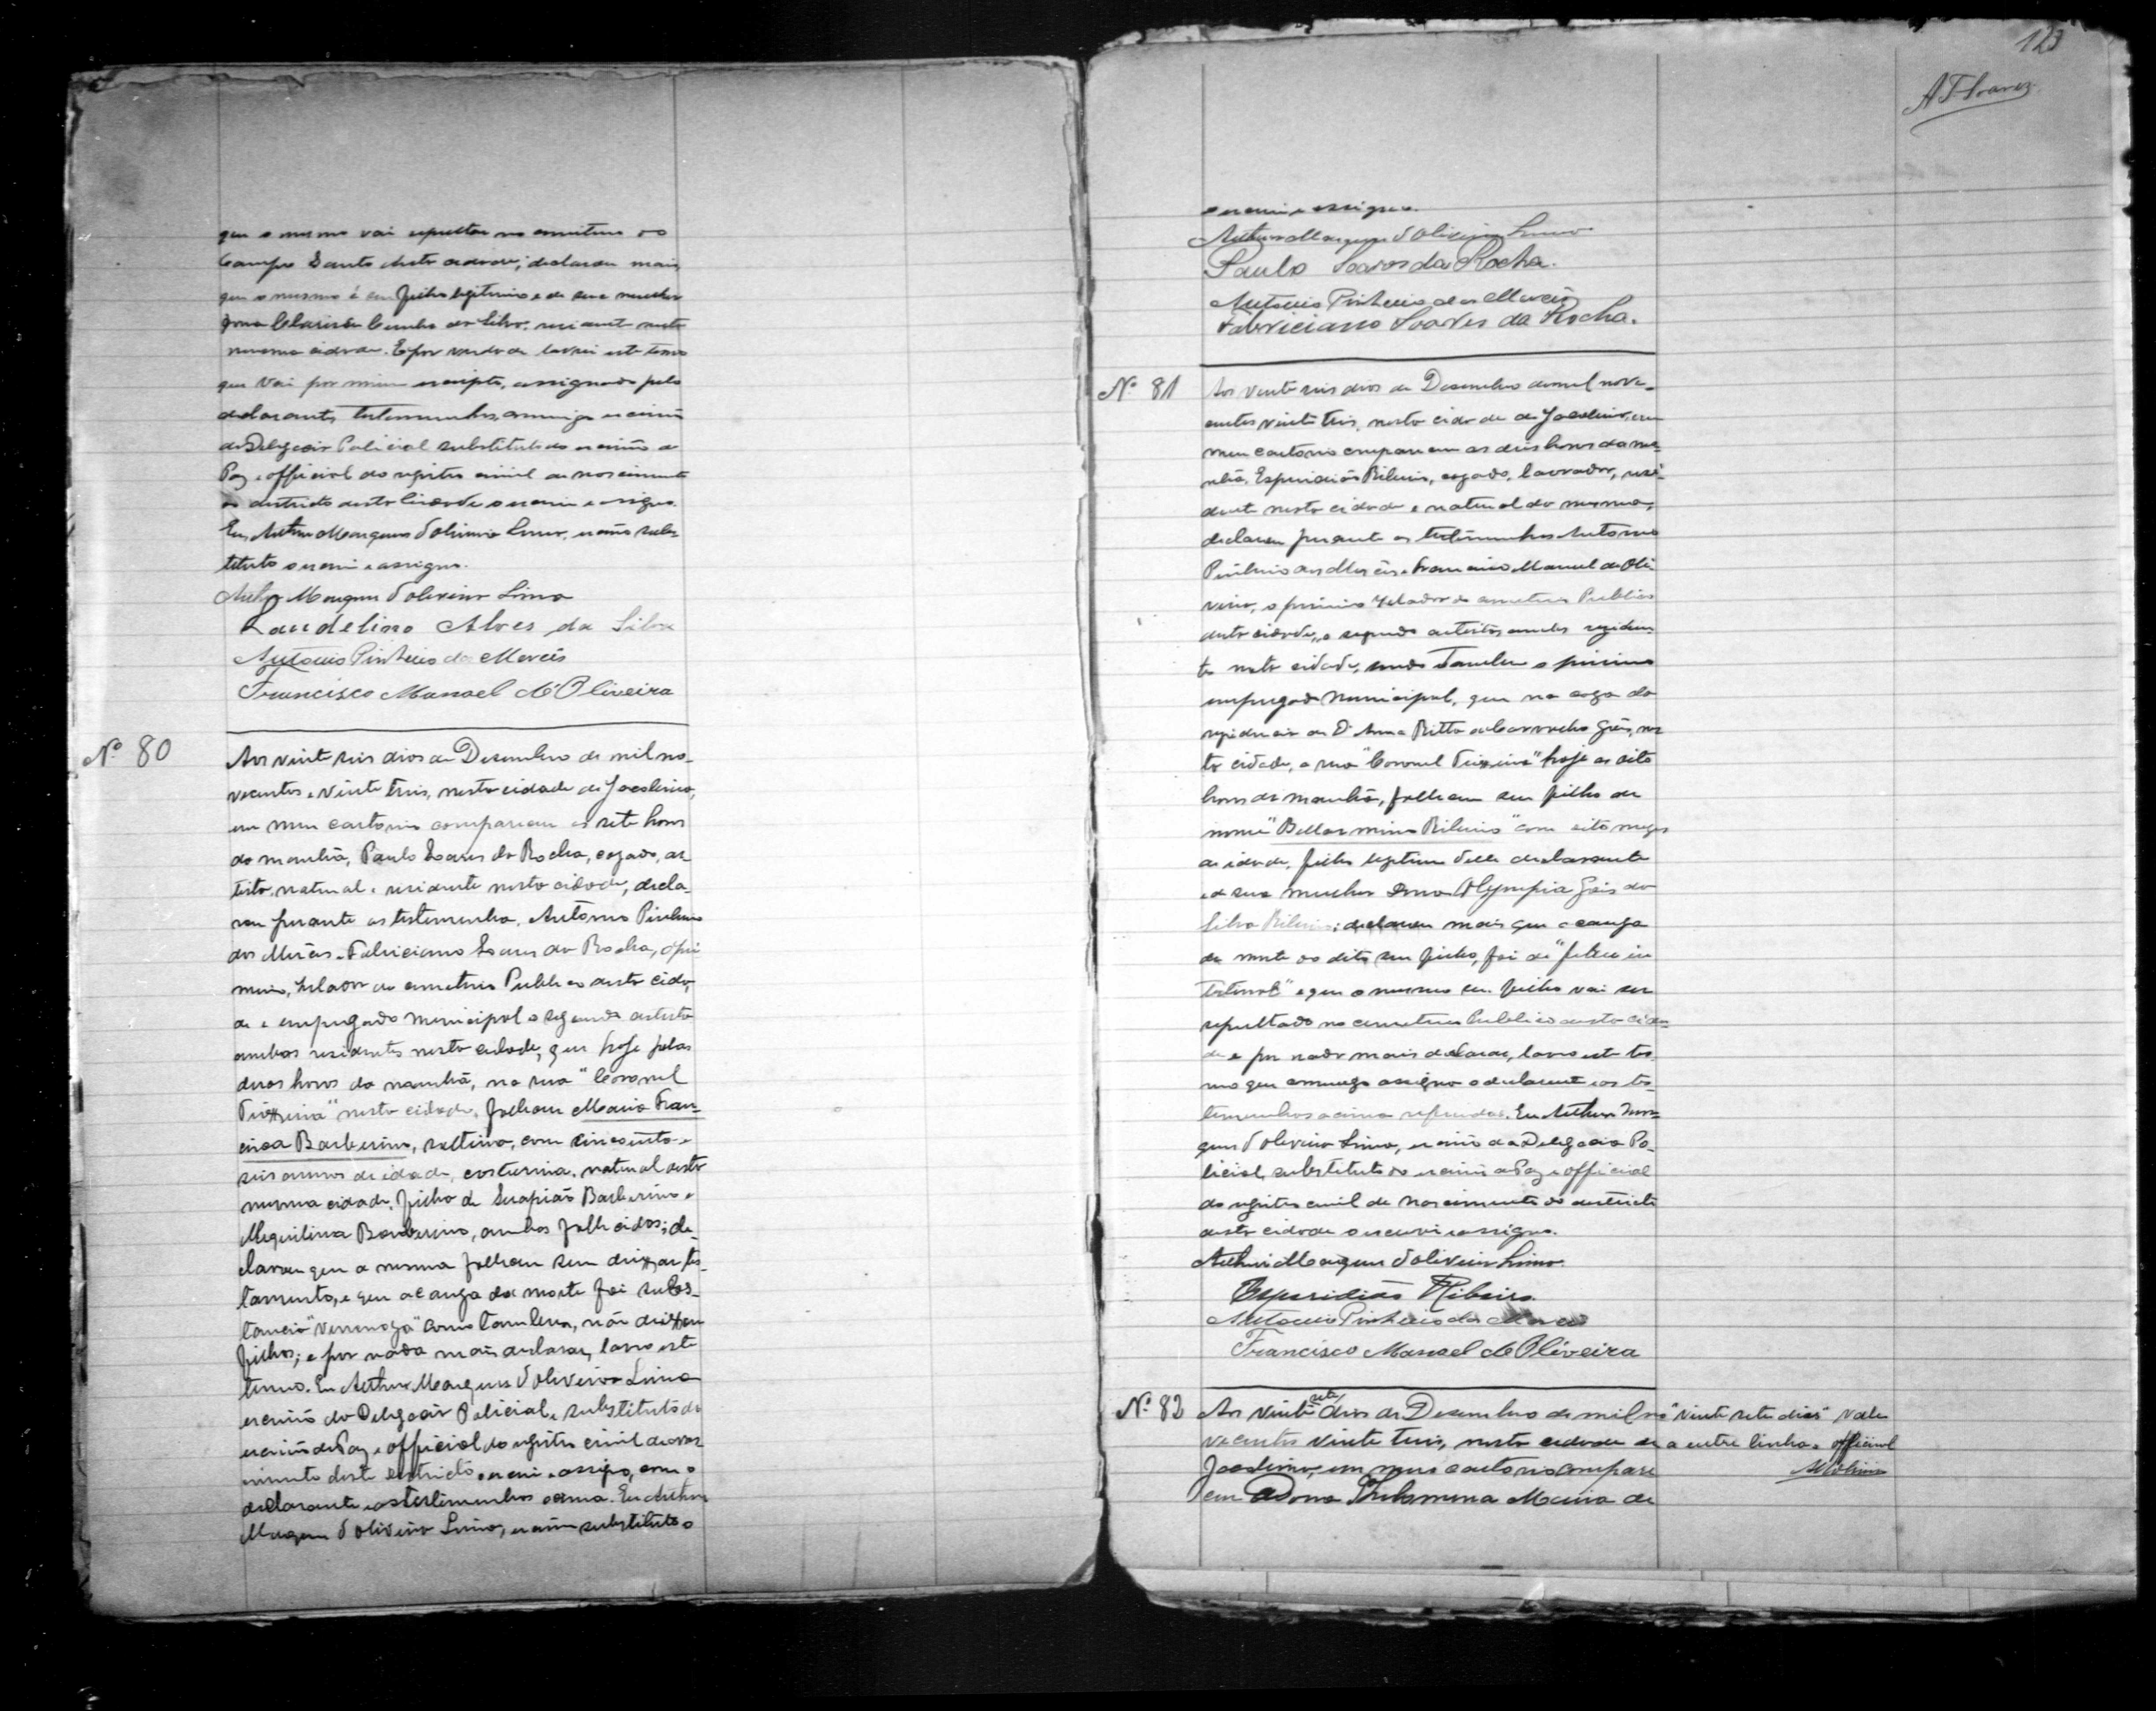 que o mesmo vai sepultar no cemiterio do
Campo Santo desta cidade; declarou mais,
que o mesmo é seu filho legitimo e de sua mulher
Dona Clarisse Cunha da Silva, residente nesta
mesma cidade. E por verdade lavrei este termo
que vai por mim escripto, assignado pelo
declarante, testemunhas, commigo escrivão
da Delegacia Policial substituto do escrivão de
Paz e official do registro civil de nascimento
do districto desta cidade o escrevi e assigno.
Eu Arthur Marques d'Oliveira Lima, escrivão subs-
tituto o escrevi e assigno.
Arthur Marques d'Oliveira Lima
Laudelino Alves da Silva
Antonio Pinheiro das Mercês
Francisco Manoel d'Oliveira
Nº 80
Aos vinte seis dias de Desembro de mil no-
vecentos e vinte tres, nesta cidade de Jacobina,
em meu cartorio compareceu as sete horas
da manhã, Paulo Soares da Rocha, cazado, ar-
tista, natural e residente nesta cidade, decla-
rou perante as testemunhas, Antonio Pinheiro
das Mercês e Fabriciano Soares da Rocha, o pri
meiro, zelador do cemeterio Publico desta cida-
de e empregado municipal o segundo artista
ambos residentes nesta cidade, que hoje pelas
duas horas da manhã, na rua "Coronel
Teixeira" nesta cidade, falleceu Maria Fran-
cisca Barberino, solteira, com cincoenta e
seis annos de idade, costureira, natural desta
mesma cidade, filha de Serapião Barberino e
Mequilina Barberino, ambos fallecidos; de-
clarou que a mesma falleceu sem deixar tes-
tamento, e que a cauza da morte foi subs-
tancia "Venenoza" como tambem, não deixou
filhos; e por nada mais declarar, lavro este
termo. Eu Arthur Marques d'Oliveira Lima
escrivão da Delegacia Policial, substituto do
escrivão de Paz e official do registro civil de nas-
cimento deste districto o escrevi e assigno, com o
declarante e as testemunhas acima. Eu Arthur
Marques d'Oliveira Lima, escrivão substituto o
123
A T Soares
escrevi e assigno.
Arthur Marques d'Oliveira Lima
Paulo Soares da Rocha.
Antonio Pinheiro das Mercês
Fabriciano Soares da Rocha.
Nº 81
Aos vinte seis dias de Desembro de mil nove-
centos vinte tres, nesta cidade de Jacobina, em
meu cartorio compareceu as dez horas da ma-
nhã, Esperidião Ribeiro, cazado, lavrador, resi-
dente nesta cidade e natural da mesma,
declarou perante as testemunhas Antonio
Pinheiro das Mercês e Francisco Manoel de Oli
veira, o primeiro zelador do cemeterio Publico
desta cidade, o segundo artista, ambos residen-
tes nesta cidade, sendo tambem o primeiro
empregado municipal, que na caza da
residencia de D. Anna Ritta de Carvalho Góes, nes-
ta cidade, a rua "Coronel Teixeira" hoje as oito
horas da manhã, falleceu seu filho de
nome "Bellarmino Ribeiro" com oito mezes
de idade, filho legitimo delle declarante
e de sua mulher Dona Olympia Góes da
Silva Ribeiro; declarou mais que a cauza
da morte do dito seu filho, foi de "febre in
testinal" e que o mesmo seu filho vai ser
sepultado no cemeterio Publico desta cida-
de e por nada mais declarar, lavro este ter-
mo que commigo assigna o declarante e as tes-
temunhas acima referidas. Eu Arthur Mar-
ques d'Oliveira Lima, escrivão da Delegacia Po-
licial, substituto do escrivão de Paz e official
do registro civil de nascimento do districto
desta cidade o escrevi e assigno.
Arthur Marques d'Oliveira Lima.
Esperidião Ribeiro.
Antonio Pinheiro das Mercês
Francisco Manoel de Oliveira
Nº 82
Aos vinte sete dias de Desembro de mil no
vecentos vinte tres, nesta cidade de
Jacobina, em meu cartorio compare
ceu Dona Philomena Maria de
"vinte sete dias" vale
a entre linha. official